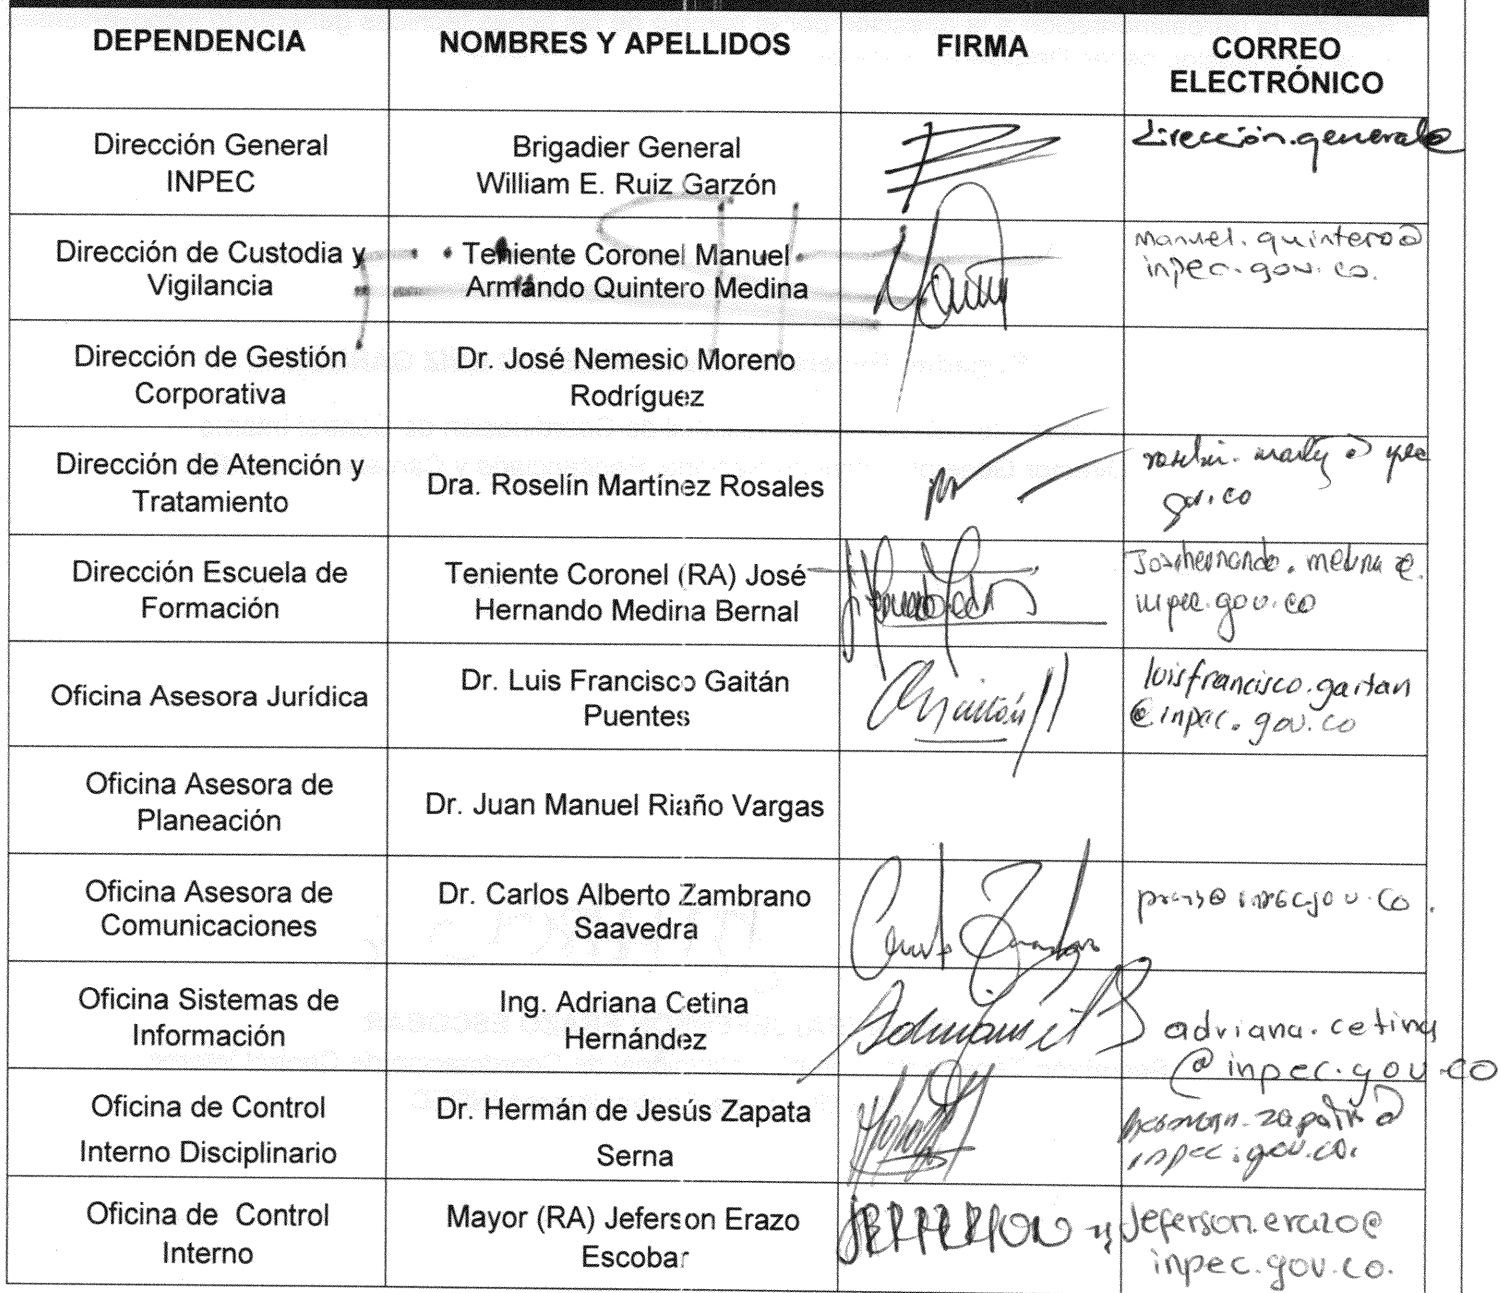 DEPENDENCIA
NOMBRES Y APELLIDOS
FIRMA
CORREO
ELECTRÓNICO
Dirección General
INPEC
Brigadier General
William E. Ruiz Garzón
dirección.general@
Dirección de Custodia y
Vigilancia
Teniente Coronel Manuel
Armando Quintero Medina
manuel.quintero@
inpec.gov.co.
Dirección de Gestión
Corporativa
Dr. José Nemesio Moreno
Rodríguez
Dirección de Atención y
Tratamiento
Dra. Roselín Martínez Rosales
gov.co
Dirección Escuela de
Formación
Teniente Coronel (RA) José
Hernando Medina Bernal
inpec.gov.co
Oficina Asesora Jurídica
Dr. Luis Francisco Gaitán
Puentes
luisfrancisco.gaitan
@inpec.gov.co
Oficina Asesora de
Planeación
Dr. Juan Manuel Riaño Vargas
Oficina Asesora de
Comunicaciones
Dr. Carlos Alberto Zambrano
Saavedra
Oficina Sistemas de
Información
Ing. Adriana Cetina
Hernández
adriana.cetina
@inpec.gov.co
Oficina de Control
Interno Disciplinario
Dr. Hermán de Jesús Zapata
Serna
inpec.gov.co.
Oficina de Control
Interno
Mayor (RA) Jeferson Erazo
Escobar
Jeferson.erazo@
inpec.gov.co.